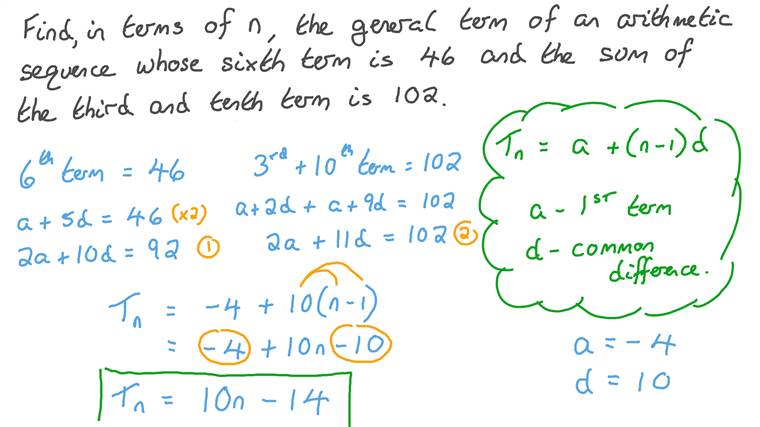 Find, in terms of n, the general term of an arithmetic
sequence whose sixth term is 46 and the sum of
the third and tenth term is 102.
6th term = 46
a + 5d = 46 (x2)
2a + 10d = 92 ①
3rd + 10th term = 102
a + 2d + a + 9d = 102
2a + 11d = 102 ②
Tn = a + (n-1)d
a - 1st term
d - common
difference.
Tn = -4 + 10(n-1)
= -4 + 10n - 10
Tn = 10n - 14
a = -4
d = 10